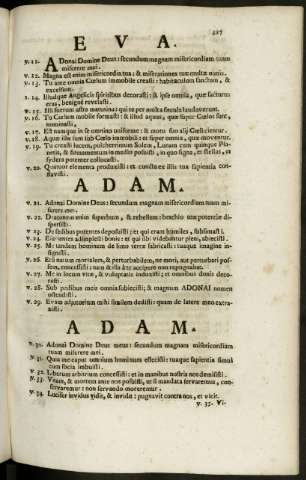 327
E V A.
v. 11. Adonai Domine Deus: secundum magnam misericordiam tuam
miserere mei.
v. 12. Magna est enim misericordia tua: & miserationes tuæ multæ nimis.
v. 13. Tu ante omnia Cœlum immobile creasti: habitaculum sanctum, &
excelsum.
v. 14. Illudque Angelicis spiritibus decorasti: & ipse omnia, quæ facturus
eras, benignè revelasti.
v. 15. Illi fuerunt astra matutina: qui te per nostra sæcula laudaverunt.
v. 16. Tu Cœlum mobile formasti: & illud aquas, quæ super Cœlos sunt,
nominasti.
v. 17. Est namque in se omnino uniforme: & motu suo alij Cœli cientur.
v. 18. Aquæ illæ sunt sub Cœlo immobili: et super omnia, quæ moventur.
v. 19. Tu creasti lucem, pulcherrimum Solem, Lunam cum quinque Pla-
netis, & firmamentum in medio posuisti, in quo signa, et stellas, et
sydera potenter collocasti.
v. 20. Quatuor elementa produxisti: ex cunctis ex illis tua sapientia con-
flavisti.
A D A M.
v. 21. Adonai Domine Deus: secundum magnam misericordiam tuam mi-
serere mei.
v. 22. Draconem enim superbum, & rebellem: brachio tuæ potentiæ di-
spersisti.
v. 23. De sedibus potentes deposuisti: et qui erant humiles, sublimasti.
v. 24. Gloriantes adimplesti bonis: et qui sibi videbantur pleni, abiecisti.
v. 25. Me tandem hominem de limo terræ fabricasti: tuaque imagine in-
signisti.
v. 26. Etsi natura mortalem, & perturbabilem, ne mori, aut perturbari pos-
sem, concessisti: nam & ista arte accipere non repugnabat.
v. 27. Me in locum vitæ, & voluptatis induxisti: et omnibus donis deco-
rasti.
v. 28. Sub pedibus meis omnia subiecisti: & magnum ADONAI nomen
ostendisti.
v. 29. Evam adjutorium mihi similem dedisti: quam de latere meo extra-
xisti.
A D A M.
v. 30. Adonai Domine Deus meus: secundum magnam misericordiam
tuam miserere mei.
v. 31. Quia me caput omnium hominum effecisti: tuaque sapientia simul
cum socia imbuisti.
v. 32. Liberum arbitrium concessisti: et in manibus nostris nos demisisti.
v. 33. Vitam, & mortem ante nos posuisti, ut si mandata servaremus, con-
servaremur: non servando moreremur.
v. 34. Lucifer invidus vidit, & invidit: pugnavit contra nos, et vicit.
v. 35. Vi-